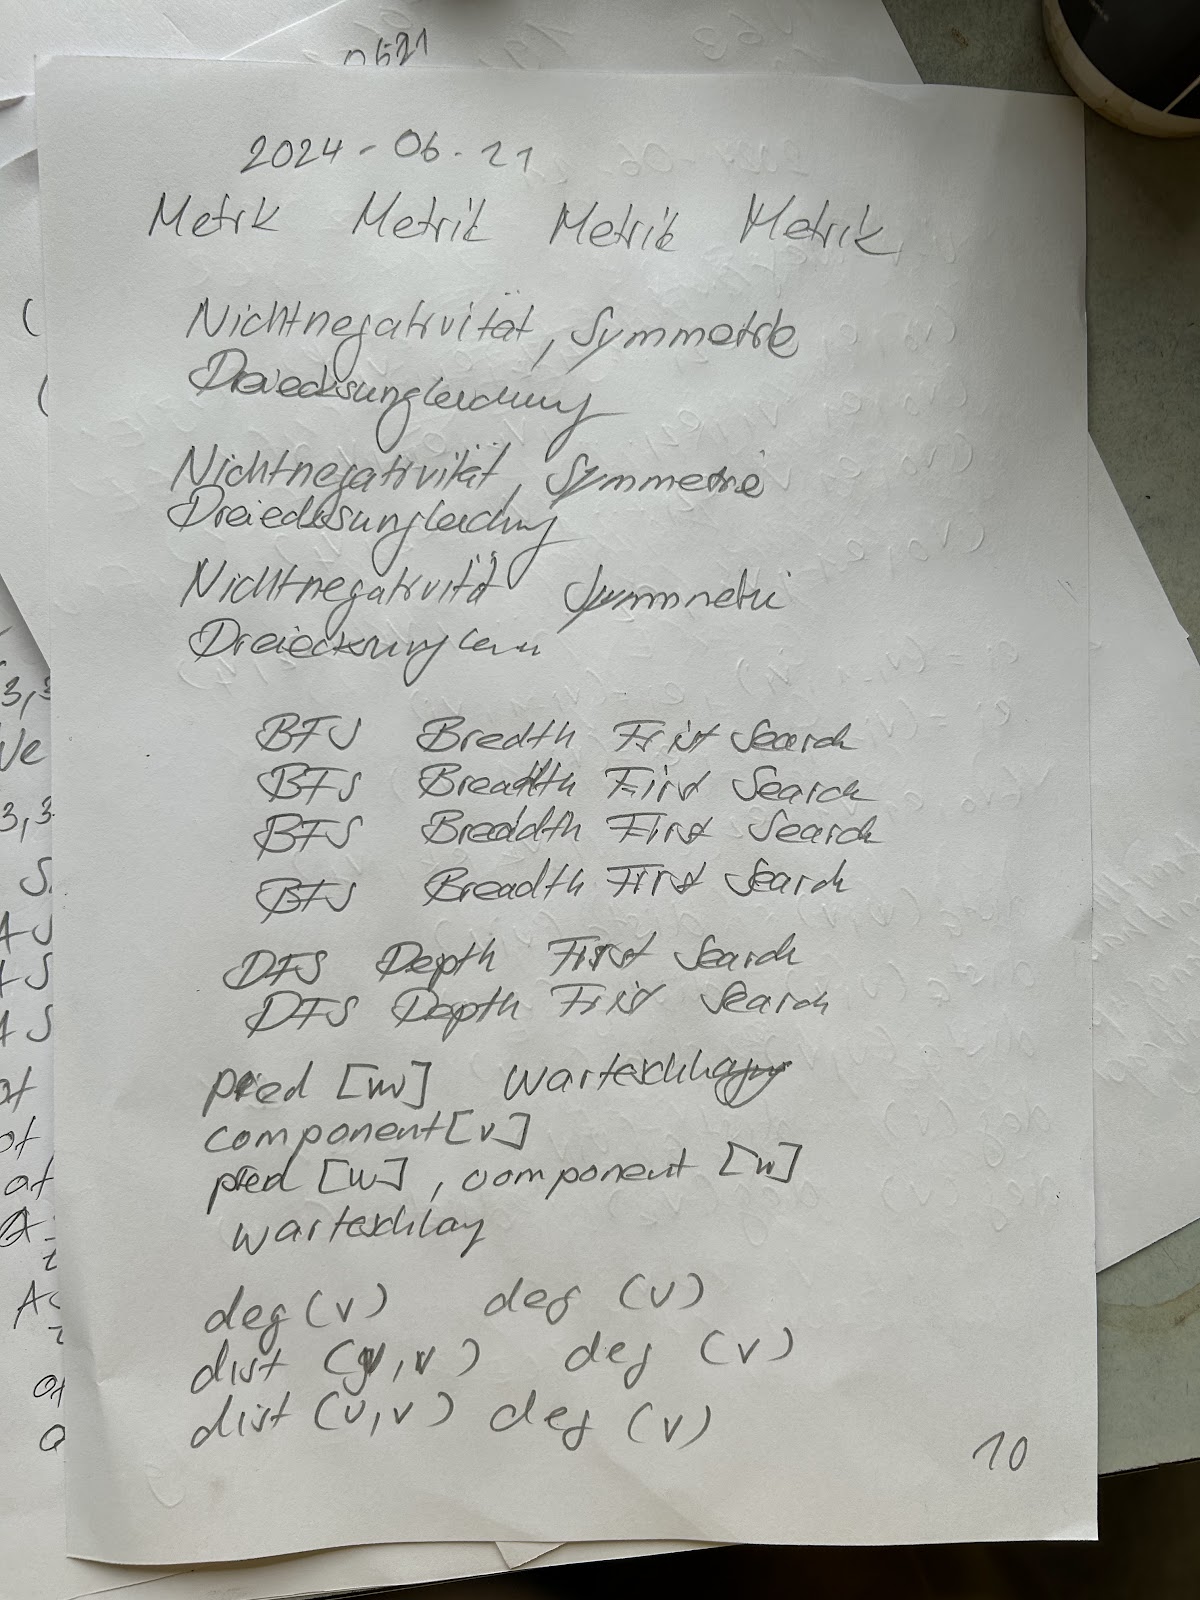 0621
2024-06-21
Metrk Metrik Metrik Metrik
Nichtnegativität, Symmetrie
Dreiecksungleichung
Nichtnegativität, Symmetrie
Dreiecksungleichung
Nichtnegativität Symmnetri
Dreiecksungleiu
BFS Bredth Frist Search
BFS Breadth First Search
BFS Breadth First Search
BFS Breadth First Search
DFS Depth First Search
DFS Depth Frist Search
pred [w]
component[v]
pred [w], component [w]
Warteschlag
deg (v) deg (v)
dist (u,v) deg (v)
dist (u,v) deg (v)
10
3,3
3,3